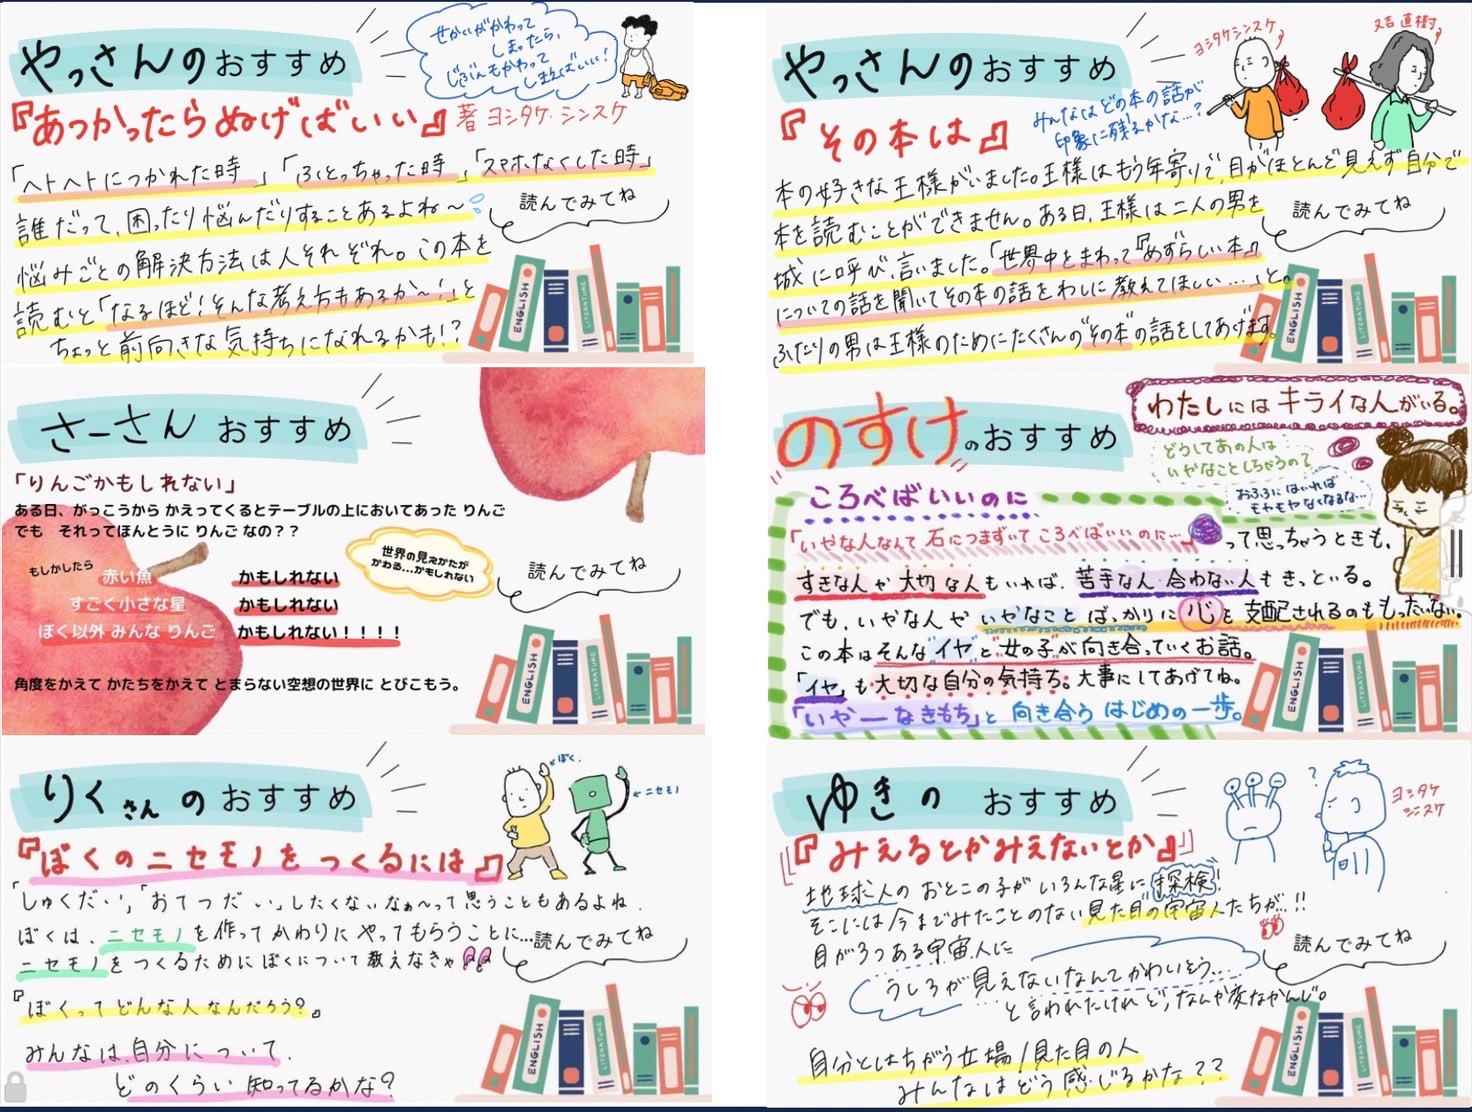 やっさんのおすすめ
せかいがかわって
しまったら、
じぶんもかわって
しまえばいい!
『あつかったらぬげばいい』著 ヨシタケ シンスケ
「ヘトヘトにつかれた時」「ふとっちゃった時」「スマホなくした時」
誰だって、困ったり悩んだりすることあるよね〜
読んでみてね
悩みごとの解決方法は人それぞれ。この本を
読むと「なるほど!そんな考え方もあるか〜!」と
ちょっと前向きな気持ちになれるかも!?
ENGLISH
LITERATURE
やっさんのおすすめ
ヨシタケシンスケ
又吉直樹
『その本は』
みんなはどの本の話が
印象に残るかな…?
本の好きな王様がいました。王様はもう年寄りで、目がほとんど見えず自分で
本を読むことができません。ある日、王様は二人の男を
読んでみてね
城に呼び、言いました。「世界中をまわって『めずらしい本』
についての話を聞いてその本の話をわしに教えてほしい…」と。
ふたりの男は王様のためにたくさんの"その本"の話をしてあげます。
ENGLISH
LITERATURE
さーさん おすすめ
「りんごかもしれない」
ある日、がっこうから かえってくるとテーブルの上においてあった りんご
でも それってほんとうに りんご なの??
もしかしたら
赤い魚 かもしれない
すごく小さな星 かもしれない
ぼく以外 みんな りんご かもしれない!!!!
世界の見えかたが
かわる...かもしれない
読んでみてね
角度をかえて かたちをかえて とまらない空想の世界に とびこもう。
ENGLISH
LITERATURE
のすけのおすすめ
わたしにはキライな人がいる。
どうしてあの人は
いやなことしちゃうので
おふろにはいれば
モヤモヤなくなるな…
ころべばいいのに
「いやな人なんて 石につまずいて ころべばいいのに…」って思っちゃうときも、
すきな人や 大切な人もいれば、苦手な人 合わない人もきっといる。
でも、いやな人や いやなこと ばっかりに 心を 支配されるのももったいない。
この本はそんな"イヤ"と"女の子"が向き合っていくお話。
「イヤ」も大切な自分の気持ち。大事にしてあげてね。
「いやーなきもち」と 向き合う はじめの一歩。
ENGLISH
LITERATURE
りくさん のおすすめ
ぼく
ニセモノ
『ぼくのニセモノをつくるには』
「しゅくだい」、「おてつだい」したくないなぁ〜って思うこともあるよね。
ぼくは、ニセモノを作ってかわりにやってもらうことに…
読んでみてね
ニセモノをつくるためにぼくについて教えなきゃ!!
『ぼくってどんな人なんだろう?』
みんなは、自分について、
どのくらい知ってるかな?
ENGLISH
LITERATURE
ゆきの おすすめ
ヨシタケ
シンスケ
『みえるとかみえないとか』
地球人のおとこの子がいろんな星に探検!
そこには今までみたことのない見た目の宇宙人たちが…!!
目が3つある宇宙人に
読んでみてね
うしろが見えないなんてかわいそう…
と言われたけれど、なんか変なかんじ。
自分とはちがう立場/見た目の人
みんなはどう感じるかな??
ENGLISH
LITERATURE